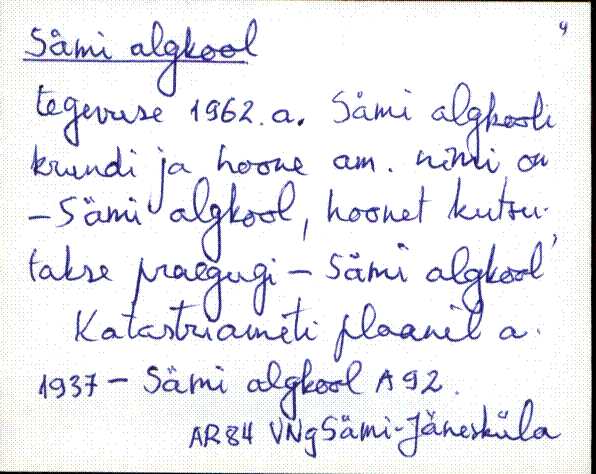 Sämi algkool 4
tegevuse 1962. a. Sämi algkooli
krundi ja hoone am. nimi on
– Sämi algkool, hoonet kutsu-
takse praegugi – Sämi algkool
Katastriameti plaanil a.
1937 – Sämi algkool A 92.
AR 84 VNg Sämi-Jäneskūla